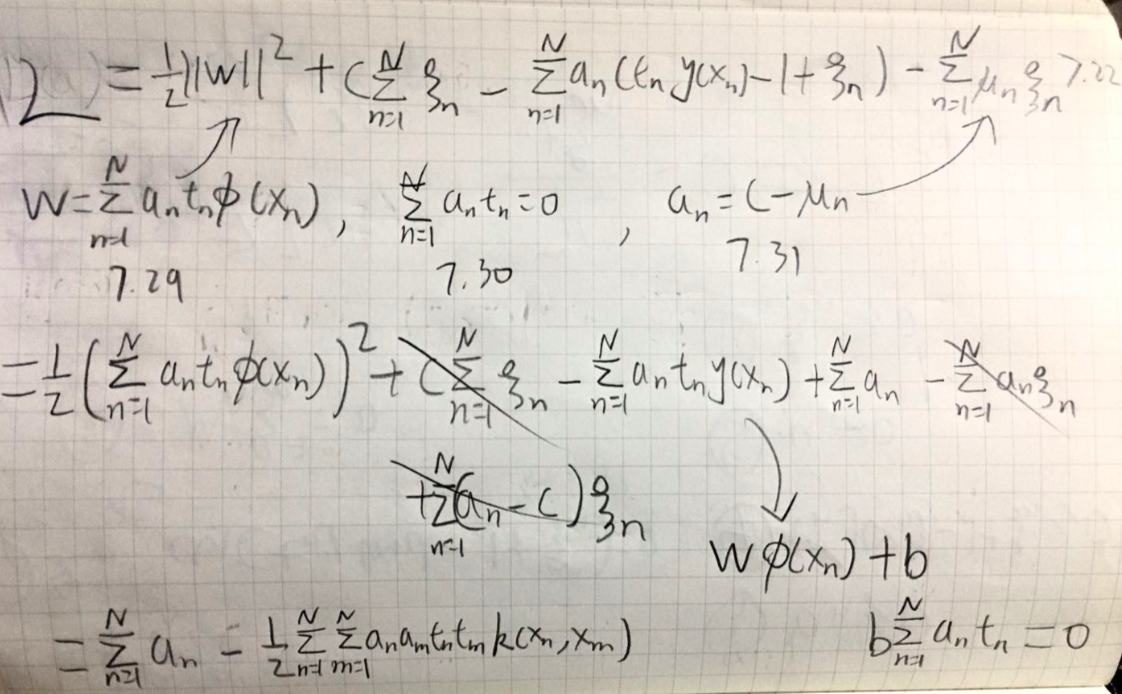 L = 1/2 ||w||² + C Σ_{n=1}^{N} ξ_n − Σ_{n=1}^{N} a_n (t_n y(x_n) − 1 + ξ_n) − Σ_{n=1}^{N} μ_n ξ_n 7.22
w = Σ_{n=1}^{N} a_n t_n φ(x_n), Σ_{n=1}^{N} a_n t_n = 0, a_n = C − μ_n
7.29 7.30 7.31
= 1/2 (Σ_{n=1}^{N} a_n t_n φ(x_n))² + C Σ_{n=1}^{N} ξ_n − Σ_{n=1}^{N} a_n t_n y(x_n) + Σ_{n=1}^{N} a_n − Σ_{n=1}^{N} a_n ξ_n
+ Σ_{n=1}^{N} (a_n − C) ξ_n
w φ(x_n) + b
= Σ_{n=1}^{N} a_n − 1/2 Σ_{n=1}^{N} Σ_{m=1}^{N} a_n a_m t_n t_m k(x_n, x_m) b Σ_{n=1}^{N} a_n t_n = 0